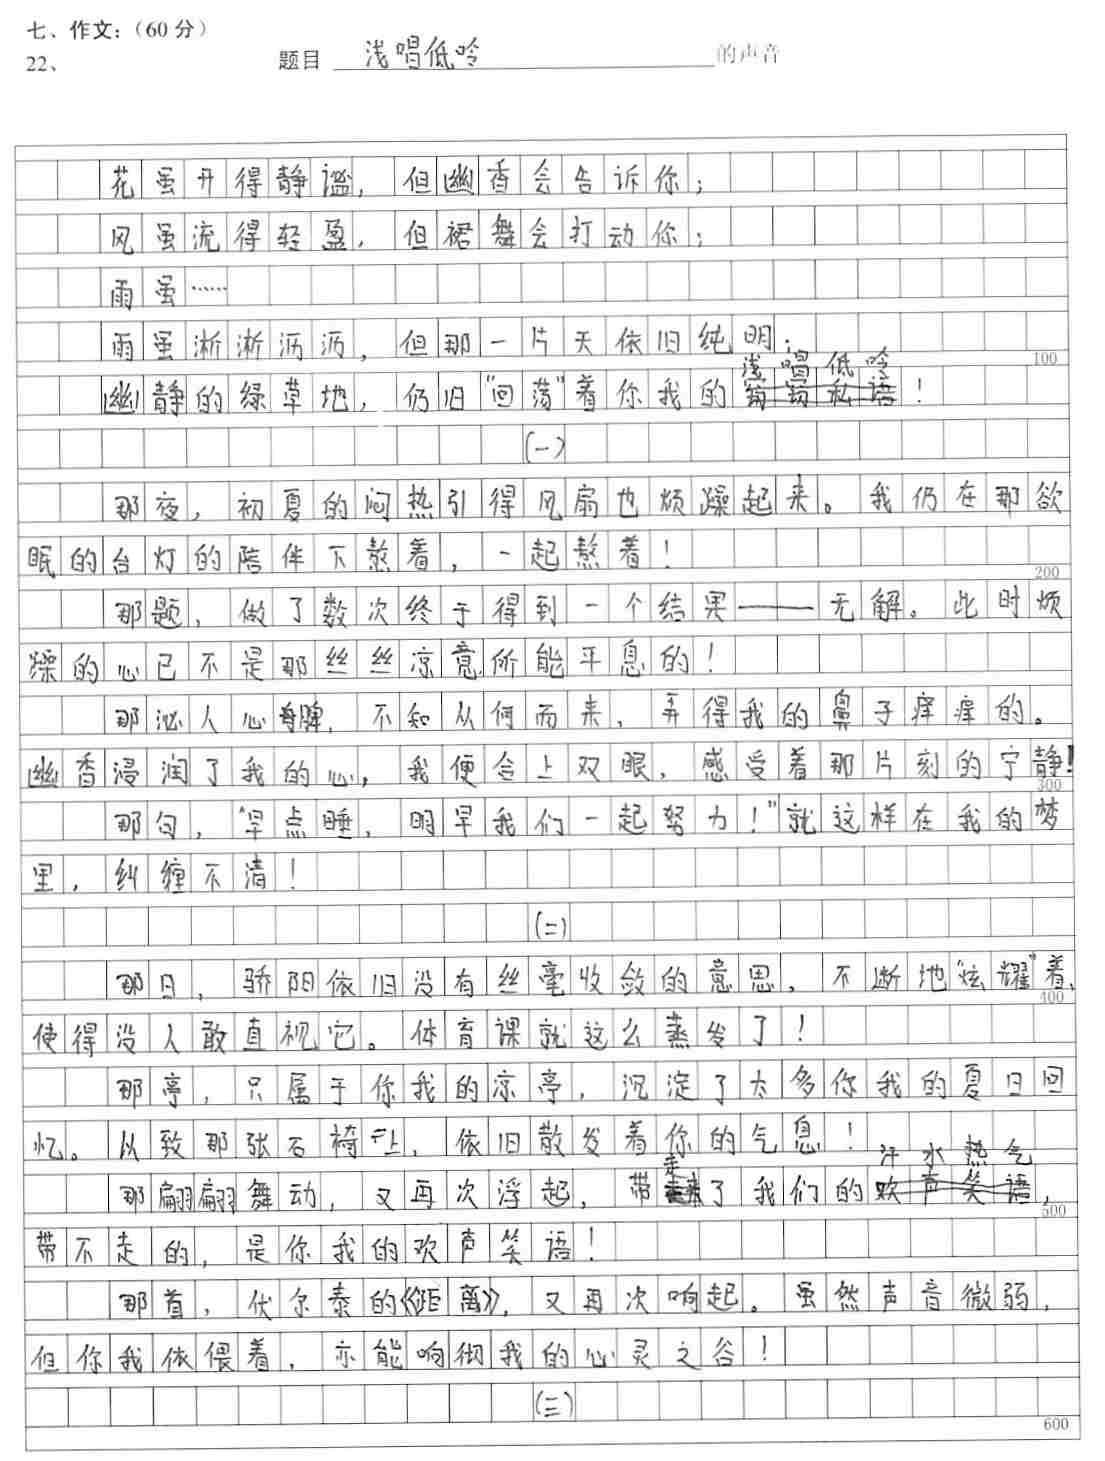 七、作文：（60 分）
22、 题目 浅唱低吟 的声音
花虽开得静谧，但幽香会告诉你；
风虽流得轻盈，但裙舞会打动你；
雨虽……
雨虽淅淅沥沥，但那一片天依旧纯明；
100
浅唱低吟
幽静的绿草地，仍旧“回荡”着你我的窃窃私语！
（一）
那夜，初夏的闷热引得风扇也烦躁起来。我仍在那欲
眠的台灯的陪伴下熬着，一起熬着！
200
那题，做了数次终于得到一个结果——无解。此时烦
躁的心已不是那丝丝凉意所能平息的！
那沁人心脾，不知从何而来，弄得我的鼻子痒痒的。
幽香浸润了我的心，我便合上双眼，感受着那片刻的宁静！
300
那句，“早点睡，明早我们一起努力！”就这样在我的梦
里，纠缠不清！
（二）
那日，骄阳依旧没有丝毫收敛的意思，不断地“炫耀”着，
400
使得没人敢直视它。体育课就这么蒸发了！
那亭，只属于你我的凉亭，沉淀了太多你我的夏日回
忆。以致那张石椅上，依旧散发着你的气息！
走 汗水热气
那翩翩舞动，又再次浮起，带了我们的欢声笑语，
500
带不走的，是你我的欢声笑语！
那首，伏尔泰的《距离》，又再次响起。虽然声音微弱，
但你我依偎着，亦能响彻我的心灵之谷！
（三）
600